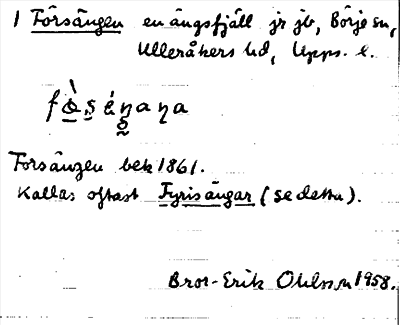 1 Forsängen en ängsfjäll jr jb, Börje sn,
Ulleråkers hd, Upps. l.
Forsängen bek 1861.
Kallas oftast Fyrisängar (se detta).
Bror-Erik Ohlsson 1958.